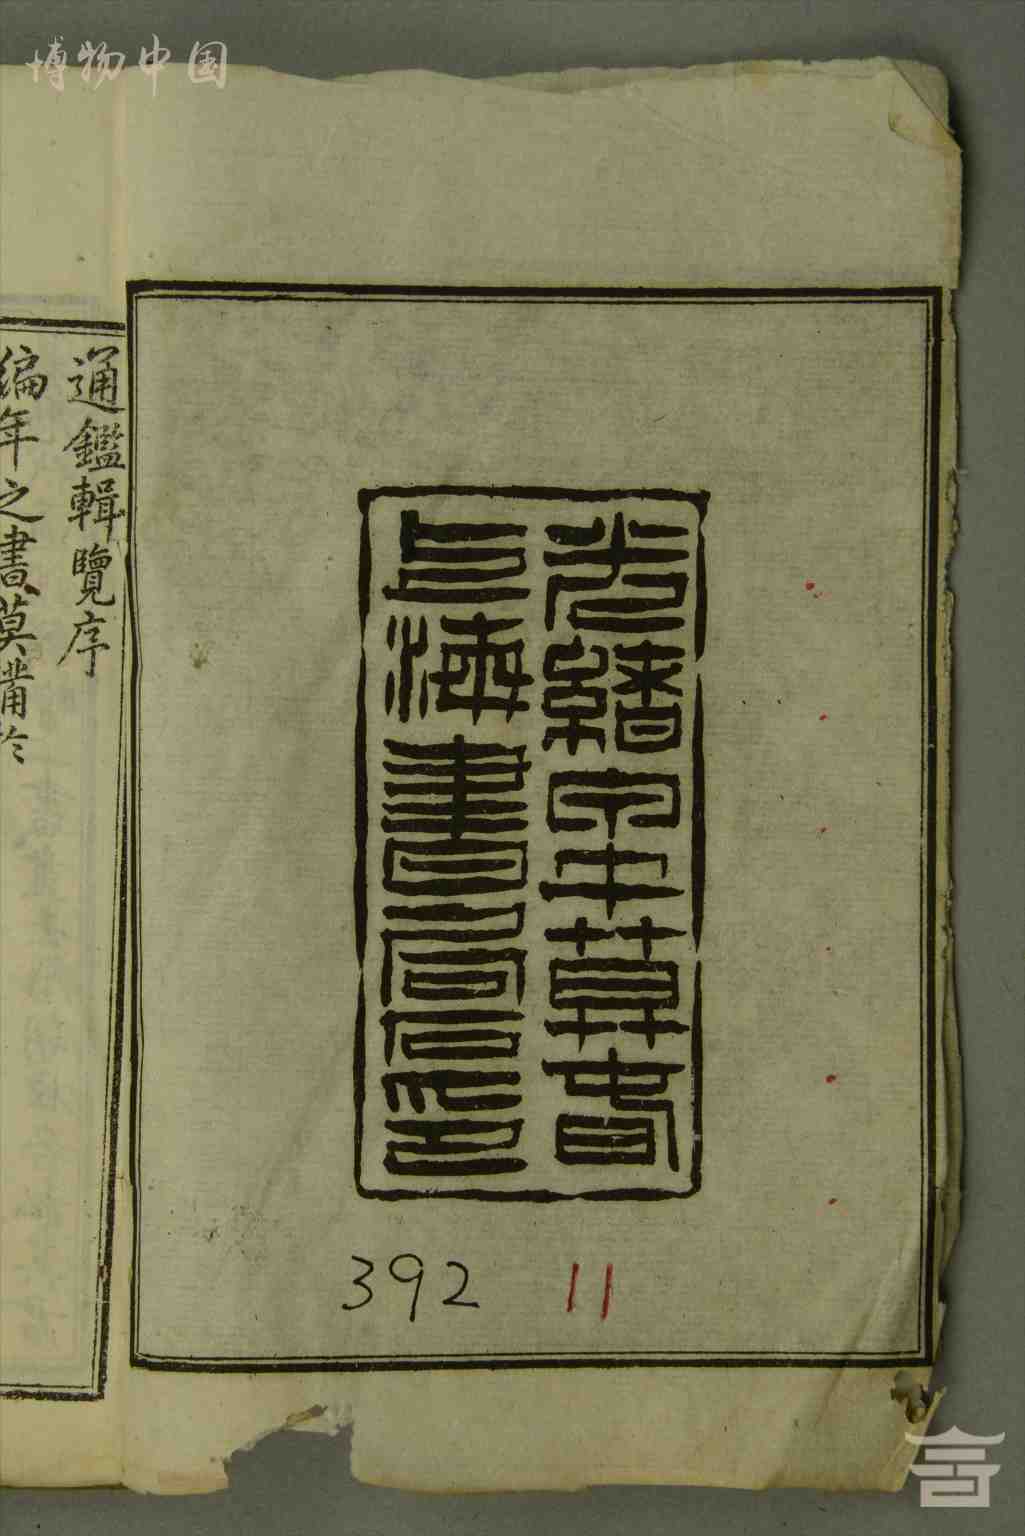 博物中国
光緒甲午莫旾
上海書局石印
通鑑輯覽序
編年之書莫備於
392 11